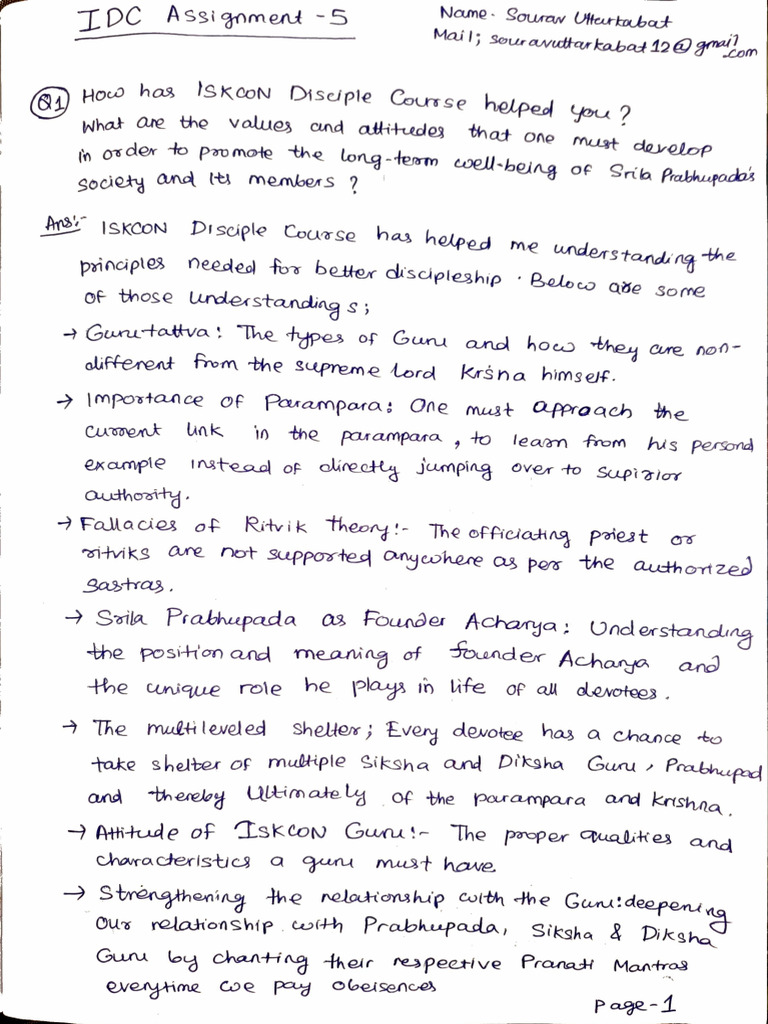 IDC Assignment - 5
Name. Sourav Uttarkabat
Mail; souravuttarkabat12@gmail.com
Q1 How has ISKCON Disciple Course helped you?
What are the values and attitudes that one must develop
in order to promote the long-term well-being of Srila Prabhupada's
society and its members ?
Ans:- ISKCON Disciple Course has helped me understanding the
principles needed for better discipleship. Below are some
of those understandings;
→ Guru tattva: The types of Guru and how they are non-
different from the supreme lord Krśna himself.
→ Importance of Parampara: One must approach the
current link in the parampara, to learn from his personal
example instead of directly jumping over to supirior
authority.
→ Fallacies of Ritvik Theory:- The officiating priest or
ritviks are not supported anywhere as per the authorized
sastras.
→ Srila Prabhupada as Founder Acharya: Understanding
the position and meaning of founder Acharya and
the unique role he plays in life of all devotees.
→ The multileveled shelter; Every devotee has a chance to
take shelter of multiple Siksha and Diksha Guru, Prabhupad
and thereby Ultimately of the parampara and krishna.
→ Attitude of ISKCON Guru:- The proper qualities and
characteristics a guru must have
→ Strengthening the relationship with the Guru: deepening
Our relationship with Prabhupada, Siksha & Diksha
Guru by chanting their respective Pranati Mantras
everytime we pay obeisences
Page-1